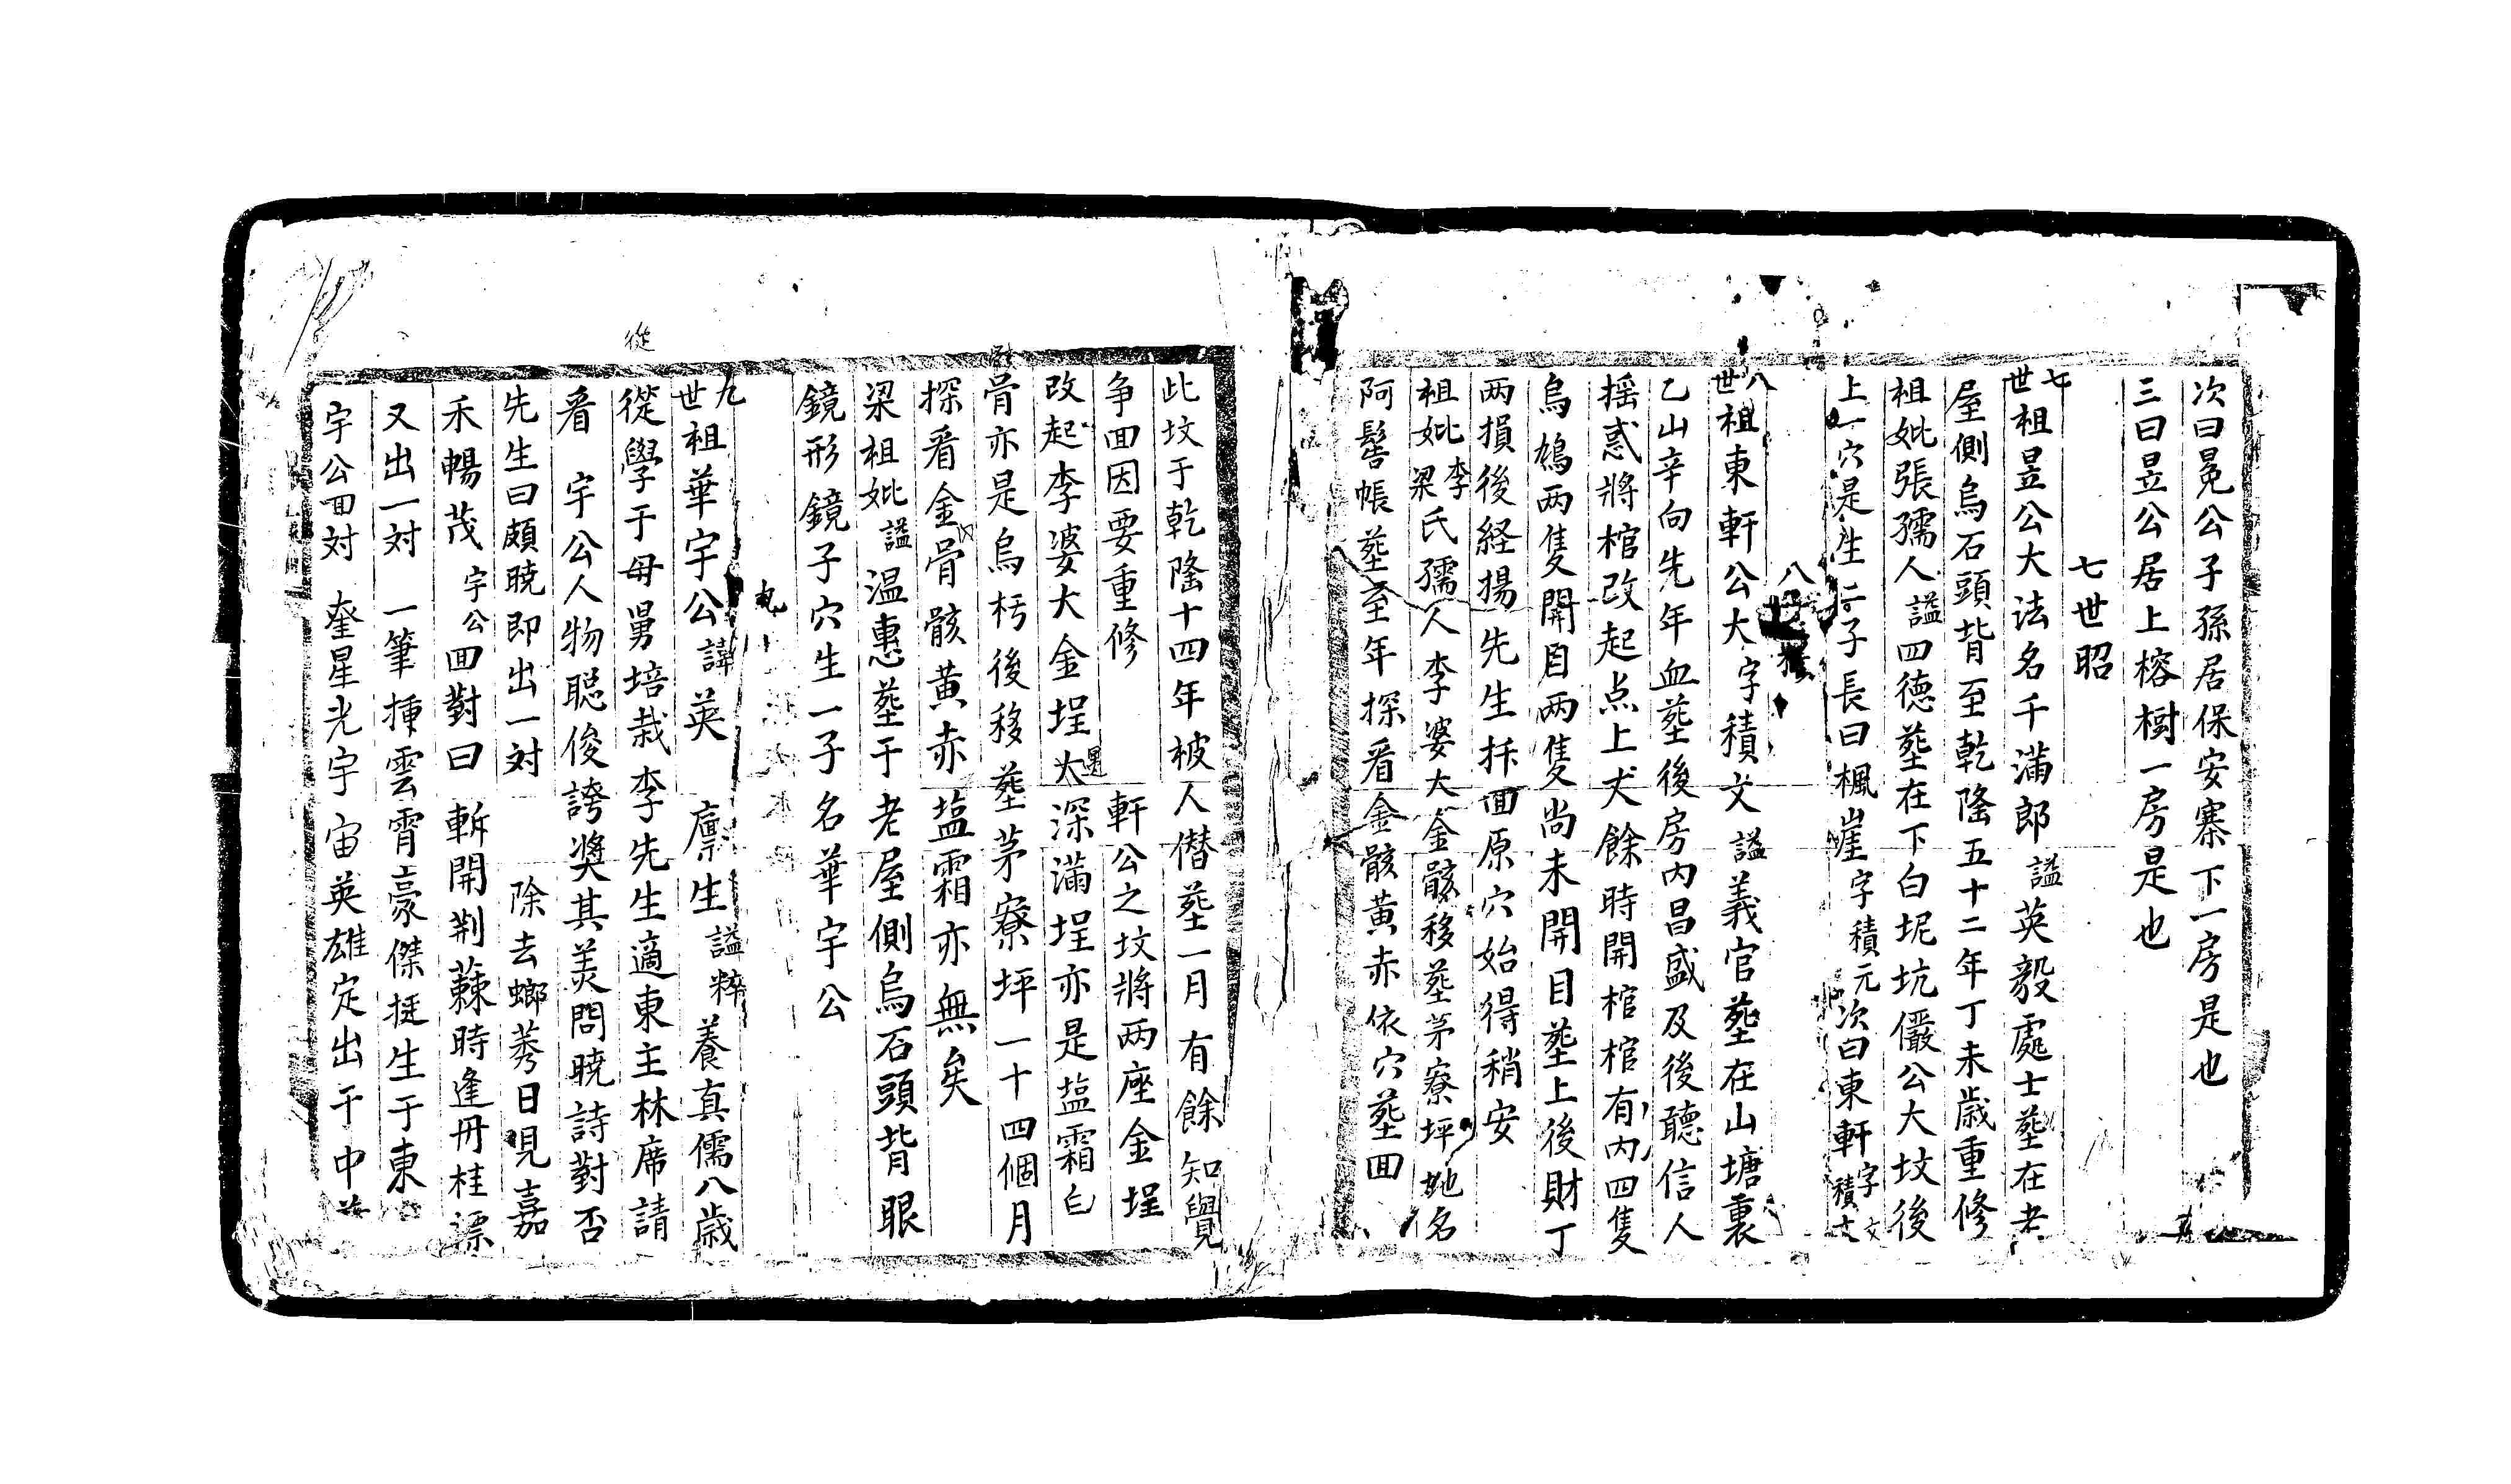 次曰冕公子孫居保安寨下一房是也
三曰昱公居上榕樹一房是也
七世昭
七世祖昱公大法名千滿郎謚英毅處士塟在老
屋側烏石頭背至乾隆五十二年丁未歲重修
祖妣張孺人謚四德塟在下白坭坑儼公大坟後
上一穴是生二子長曰楓崖字積元次曰東軒字積文
八世
八世祖東軒公大字積文謚義官塟在山塘裏
乙山辛向先年血塟後房内昌盛及後聽信人
摇惑將棺改起点上犬餘時開棺棺有内四隻
烏鳩两隻開目两隻尚未開目塟上後財丁
两損後経揚先生拆回原穴始得稍安
祖妣李梁氏孺人李婆大金骸移塟茅寮坪地名
阿髻帳塟至年探看金骸黄赤依穴塟回
此坟于乾隆十四年被人僣塟一月有餘知覺
争回因要重修軒公之坟將两座金埕
改起李婆大金埕大深滿埕亦是塩霜白
骨亦是烏朽後移塟茅寮坪一十四個月
探看金骨骸黄赤塩霜亦無矣
梁祖妣謚温惠塟于老屋側烏石頭背眼
鏡形鏡子穴生一子名華宇公
九
九世祖華宇公諱英廪生謚粹養真儒八歲
從
從學于母舅培栽李先生適東主林席請
看宇公人物聪俊誇奬其美問曉詩對否
先生曰頗曉即出一対除去螂莠日見嘉
禾暢茂宇公回對曰斬開荆蕀時逢丹桂漂
又出一対一筆揮雲霄豪傑挺生于東
宇公回対奎星光宇宙英雄定出于中